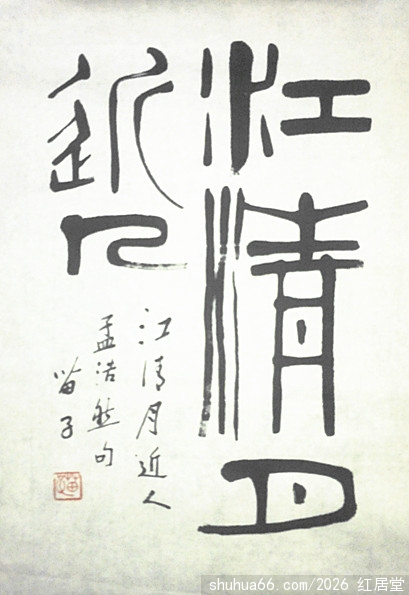 江清月
近人
江清月近人
孟浩然句
笛子
shuhua66.com/2026 红居堂